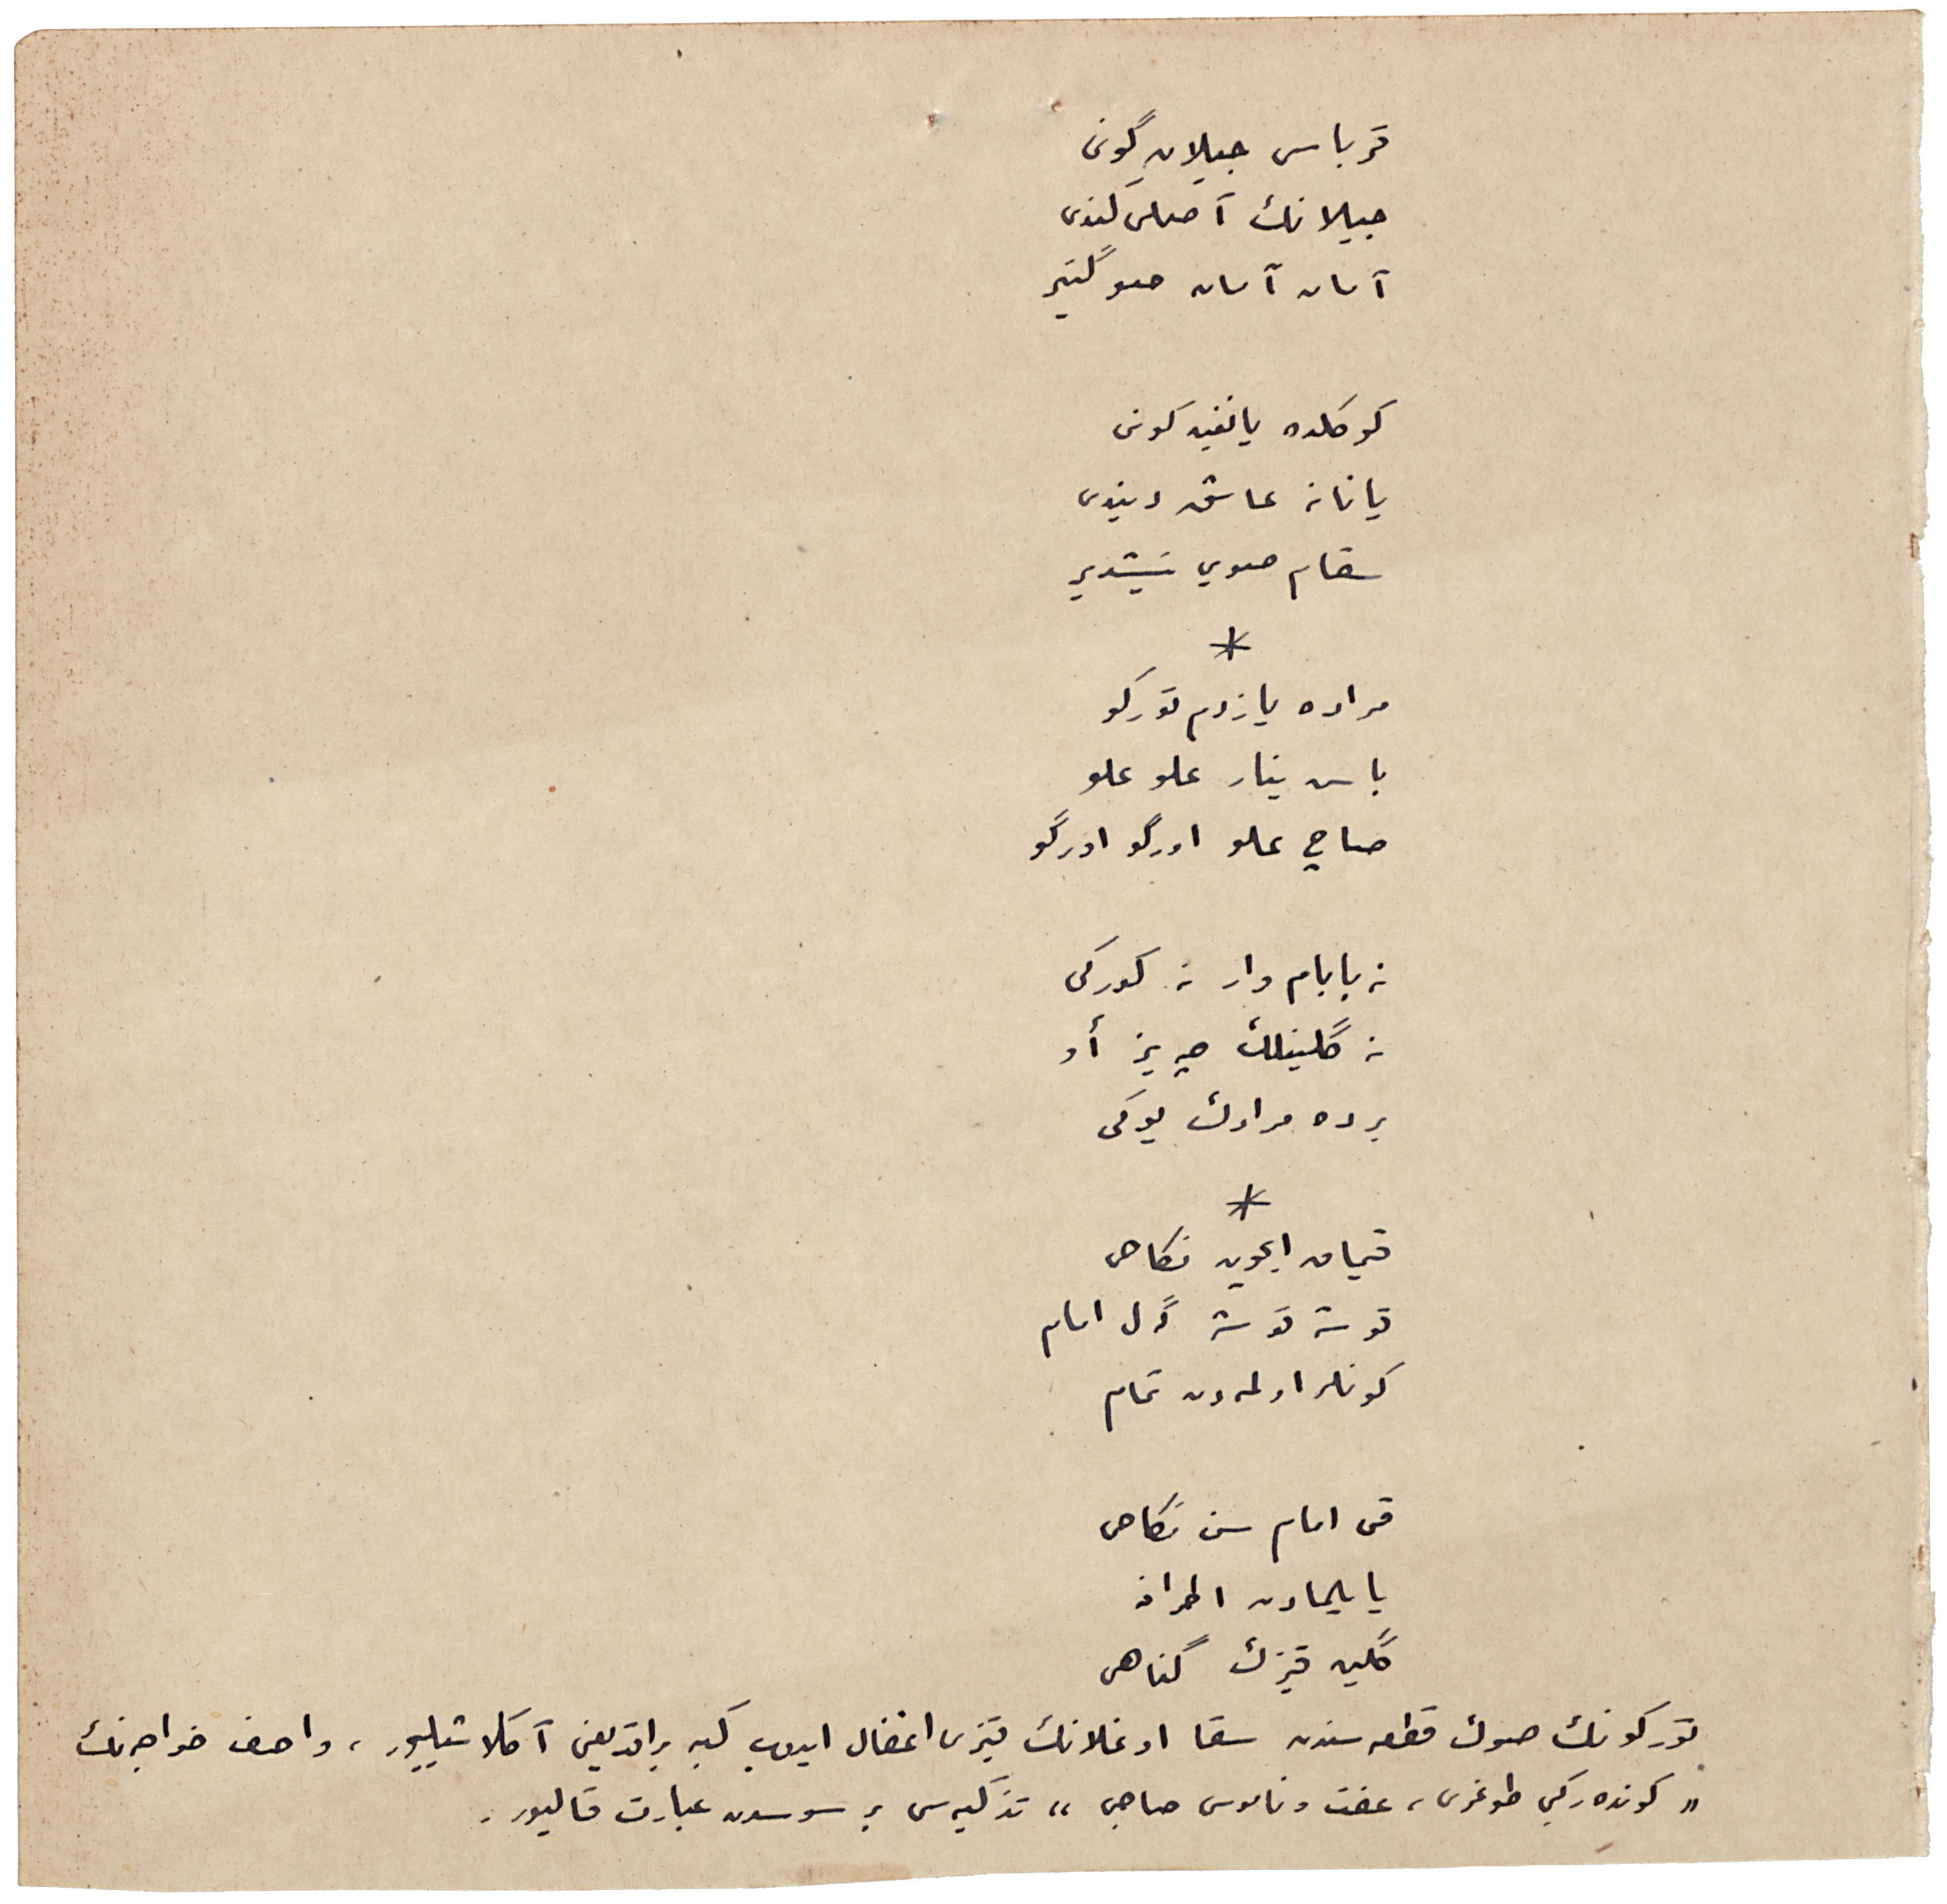 قرباسی جیلان گونی
جیلانك آصلی كندی
آمان آمان صو گتیر
كوكلده یانغین كونی
یانانه عاشق دیندی
سقام صویی یتیشدیر
*
مراده یازدم توركو
باس ینار علو علو
صاچی علو اورگو اورگو
نه بابام وار نه كوركی
نه گلینلك جهیز أو
برده مرادك یوكی
*
قیمان ایچون نكاحی
قوشه قوشه گل امام
كونلر اولمه‌دن تمام
قی امام سن نكاحی
یایلمادن اطرافه
گلین قیزك گناهی
توركونك صوك قطعه‌سندن سقا اوغلانك قیزی اغفال ایدوب كبه براقدیغی آكلاشیلیور ، واصف خواجه‌نك
« كونده‌ركی طوغری ، عفت و ناموس صاحبی » تذكیه‌سی بر سوسدن عبارت قالیور .